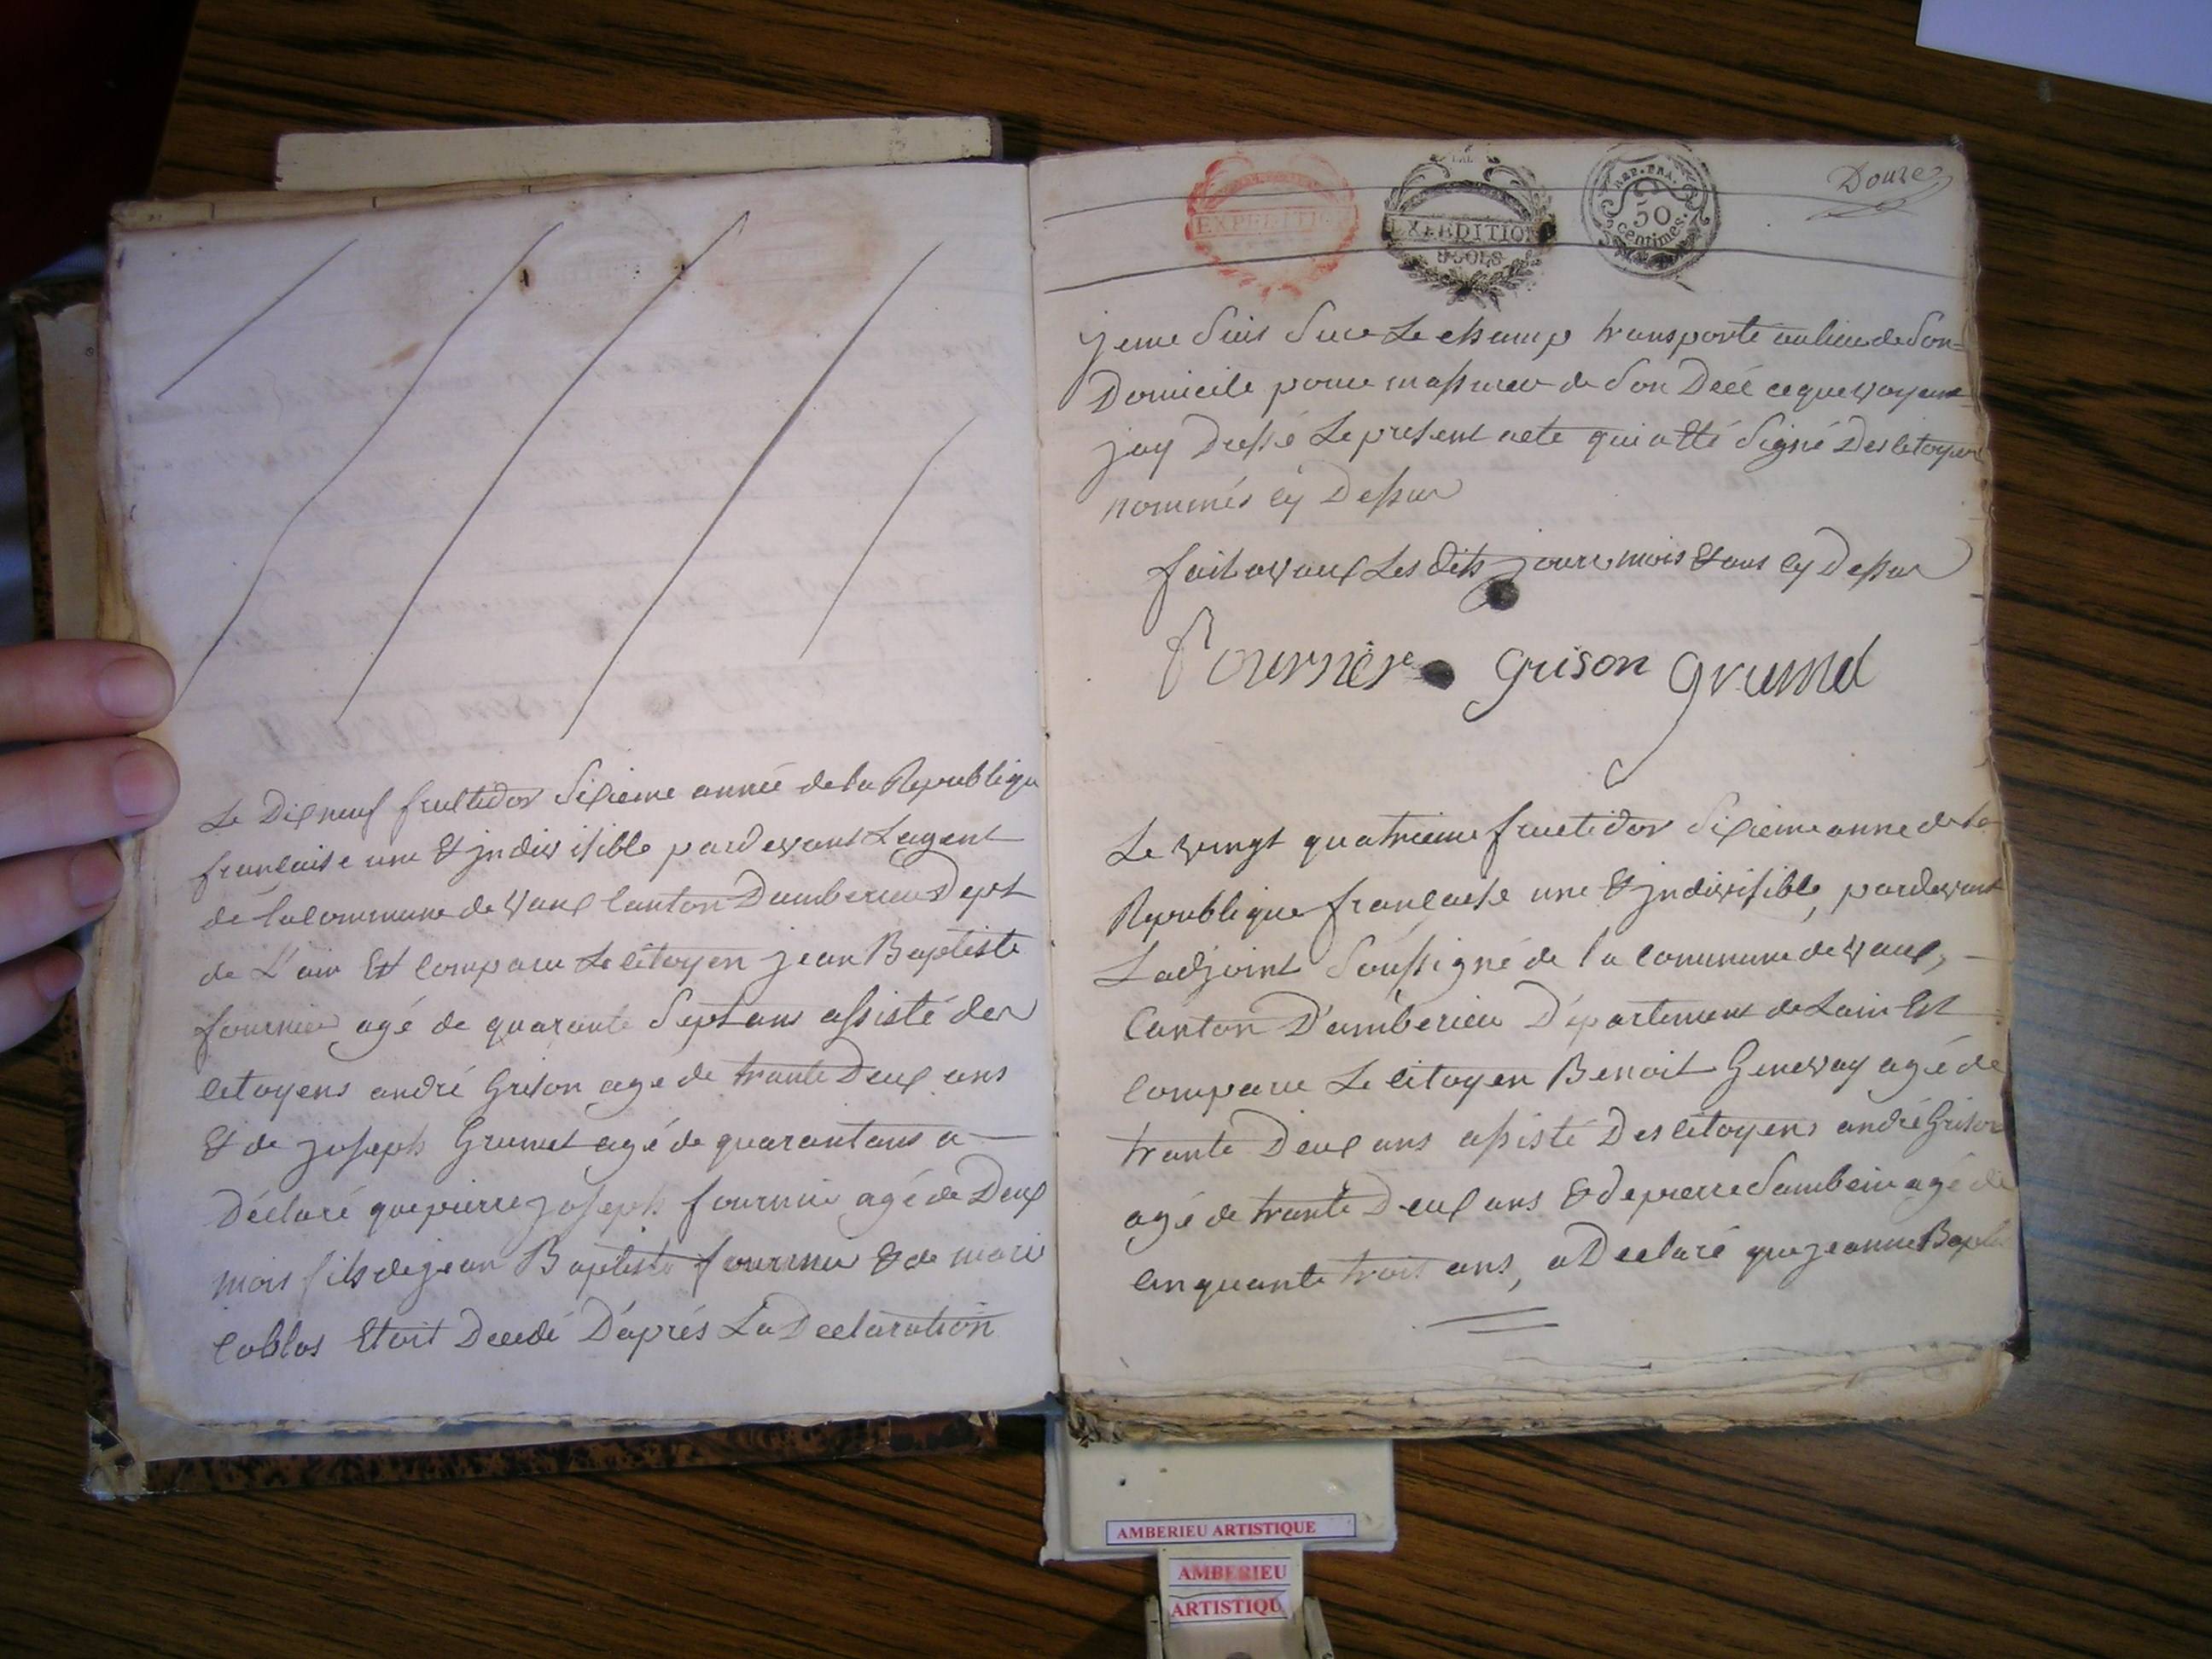 Le Dix neuf fructidor Sixieme année de la Republique
francaise une & jndivisible pardevant Lagent
de la Commune de Vaux Canton Damberieu Dept
de L'ain Est Comparu Le Citoyen jean Baptiste
fournier agé de quarante Sept ans assisté des
Citoyens andré Grison age de trante Deux ans
& de joseph Grumet agé de quarant ans a
Déclaré que pierre joseph fournier agé de Deux
mois fils de jean Baptiste fournier & de marie
Etoit Decedé D'aprés La Declaration
EXPEDITION
EXPEDITION
8 SOLS
REP. FRA.
50
centimes.
Douze
je me Suis Sur Le Champ transporté au lieu de Son
Domicile pour massurer de Son Decé ce que voyant
jay Dressé Le present acte qui a été Signé Des Citoyens
nommés cy Dessus
fait a Vaux Les dits jour mois & ans cy Dessus
fournier grison grumel
Le vingt quatrieme fructidor Sixieme anne de la
Republique francaise une & jndivisible, pardevant
L adjoint Soussigné de la Commune de Vaux,
Canton D'amberieu Département de Lain Est
Comparu Le Citoyen Benoit Genevay agé de
trante Deux ans assisté Des Citoyens andré Grison
agé de trante Deux ans & de pierre Sambein agé de
Cinquante trois ans, a Declaré que jeanne Baptis
AMBERIEU ARTISTIQUE
AMBERIEU
ARTISTIQU